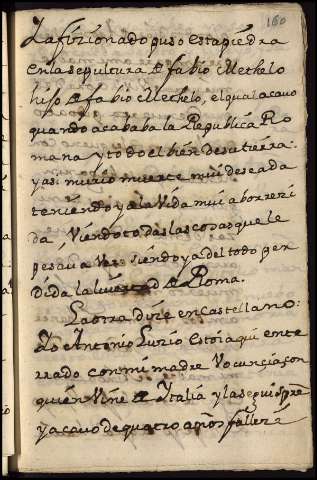 160
La fizionado puso esta piedra
en la sepultura de fabio Methelo
hijo de fabio Methelo, el qual acavo
quando acababa la Republica Ro
mana y todo el bien desu tierra.
y asi murio muerte mui deseada
teniendo ya la vida mui aborreçi
da, viendo todas las cosas que le
pesava ver siendo ya del todo per
dida la livertad de Roma.
La otra dize en Castellano:
Yo Antonio Luzio Estoi aqui ente
rrado con mi madre Vocuncia, con
quien Vine de Ytalia y la segui sipre
y acavo de quatro años falleci